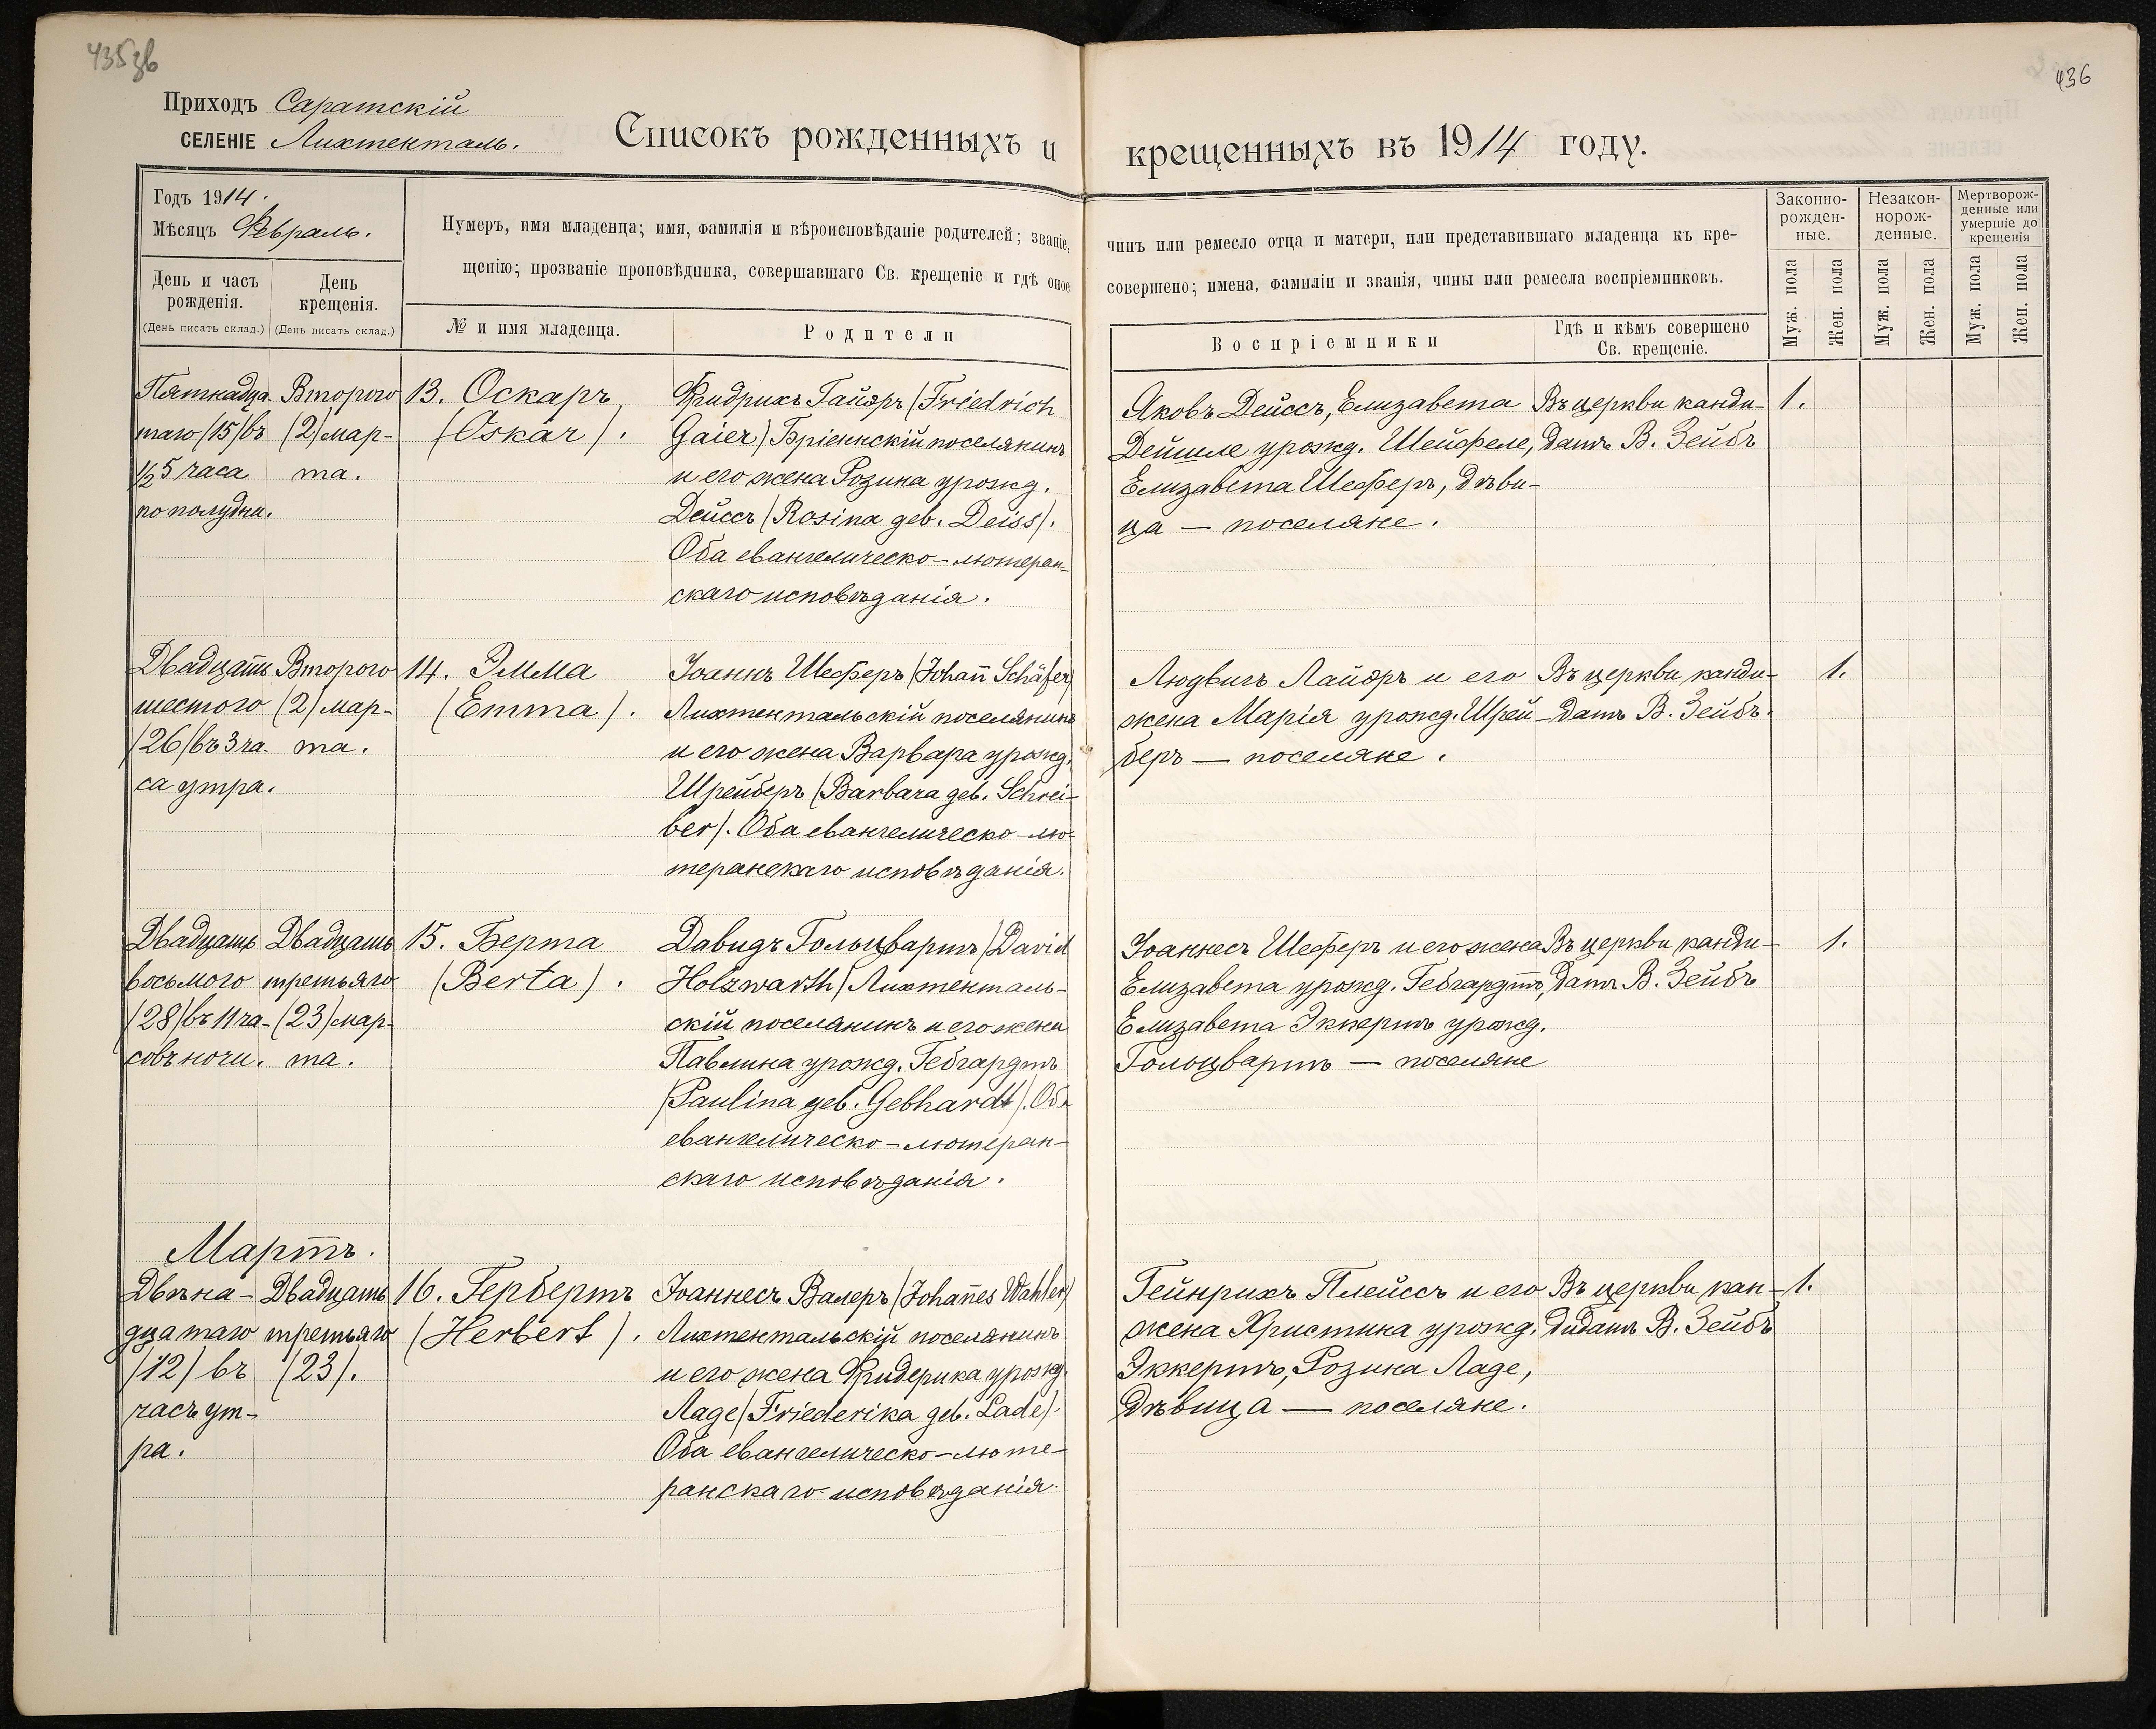 435 зв
436
Приходъ Саратскій
СЕЛЕНІЕ Лихтенталь.
Списокъ рожденныхъ и крещенныхъ въ 1914 году.
Годъ 1914.
Мѣсяцъ Февраль.
День и часъ рожденія.
(День писать склад.)
День крещенія.
(День писать склад.)
Нумеръ, имя младенца; имя, фамилія и вѣроисповѣданіе родителей; званіе, чинъ или ремесло отца и матери, или представившаго младенца къ кре-
щенію; прозваніе проповѣдника, совершавшаго Св. крещеніе и гдѣ оное совершено; имена, фамиліи и званія, чины или ремесла воспріемниковъ.
№ и имя младенца.
Родители
Воспріемники
Гдѣ и кѣмъ совершено
Св. крещеніе.
Законно-
рожден-
ные.
Незакон-
норож-
денные.
Мертворож-
денные или
умершіе до
крещенія
Муж. пола
Жен. пола
Муж. пола
Жен. пола
Муж. пола
Жен. пола
Пятнадца-
таго (15) въ
½5 часа
по полудни.
Второго
(2) мар-
та.
13. Оскаръ
(Oskar).
Фридрихъ Гайэръ (Friedrich
Gaier) Бріеннскій поселянинъ
и его жена Розина урожд.
Дейссъ (Rosina geb. Deiss).
Оба евангелическо-лютеран-
скаго исповѣданія.
Яковъ Дейссъ, Елизавета
Дейшле урожд. Шейфеле,
Елизавета Шеферъ, дѣви-
ца — поселяне.
Въ церкви канди-
датъ В. Зейбъ
1.
Двадцать
шестого
(26) въ 3 ча-
са утра.
Второго
(2) мар-
та.
14. Эмма
(Emma).
Іоаннъ Шеферъ (Johann Schäfer)
Лихтентальскій поселянинъ
и его жена Варвара урожд.
Шрейберъ (Barbara geb. Schrei-
ber). Оба евангелическо-лю-
теранскаго исповѣданія.
Людвигъ Лайэръ и его
жена Марія урожд. Шрей-
беръ — поселяне.
Въ церкви канди-
датъ В. Зейбъ.
1.
Двадцать
восьмого
(28) въ 11 ча-
совъ ночи.
Двадцать
третьяго
(23) мар-
та.
15. Берта
(Berta).
Давидъ Гольцвартъ (David
Holzwarth) Лихтенталь-
скій поселянинъ и его жена
Павлина урожд. Гебгардтъ
(Paulina geb. Gebhardt). Оба
евангелическо-лютеран-
скаго исповѣданія.
Іоаннесъ Шеферъ и его жена
Елизавета урожд. Гебгардтъ,
Елизавета Эккертъ урожд.
Гольцвартъ — поселяне
Въ церкви канди-
датъ В. Зейбъ
1.
Мартъ.
Двѣна-
дцатаго
(12) въ
часъ ут-
ра.
Двадцать
третьяго
(23).
16. Гербертъ
(Herbert).
Іоаннесъ Валеръ (Johannes Wahler)
Лихтентальскій поселянинъ
и его жена Фридерика урожд.
Ладе (Friederika geb. Lade).
Оба евангелическо-люте-
ранскаго исповѣданія.
Гейнрихъ Плейссъ и его
жена Христина урожд.
Эккертъ, Розина Ладе,
дѣвица — поселяне.
Въ церкви кан-
дидатъ В. Зейбъ
1.